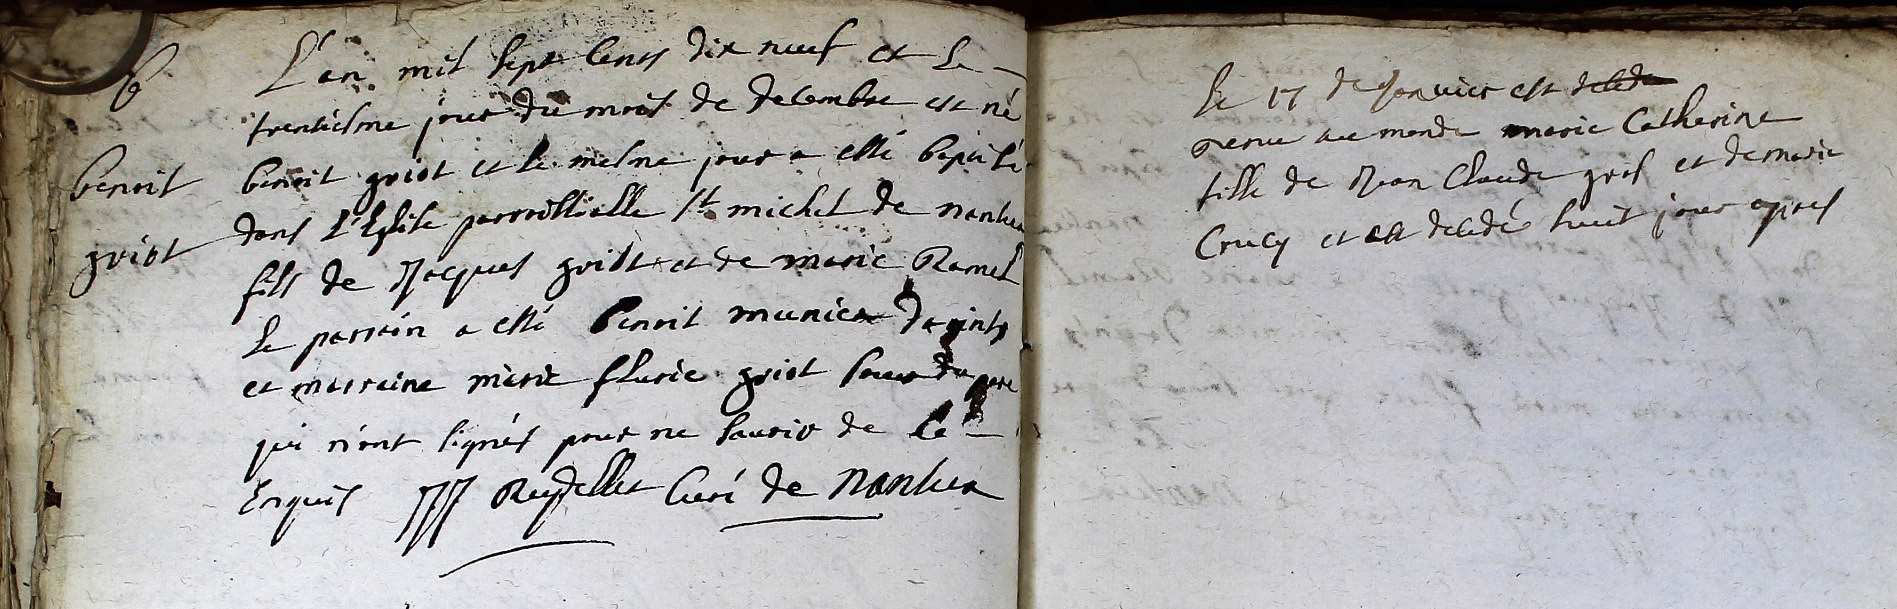 B
benoit
griot
L'an mil sept cents dix neuf et le
trentiesme jour du mois de decembre est né
benoit griot et le mesme jour a esté baptisé
dans l'Eglise parroissialle St michel de nantua
fils de Jacques griot et de marie Ramel
Le parrein a esté benoit munier
et marraine marie flurie griot soeur du pere
qui n'ont signés pour ne savoir de ce
Enquis JJJ Reydellet Curé de Nantua
Le 17 de Janvier est decede
venue au monde marie Catherine
fille de Jean Claude gros et de marie
Crucy et est decedée huit jour apres